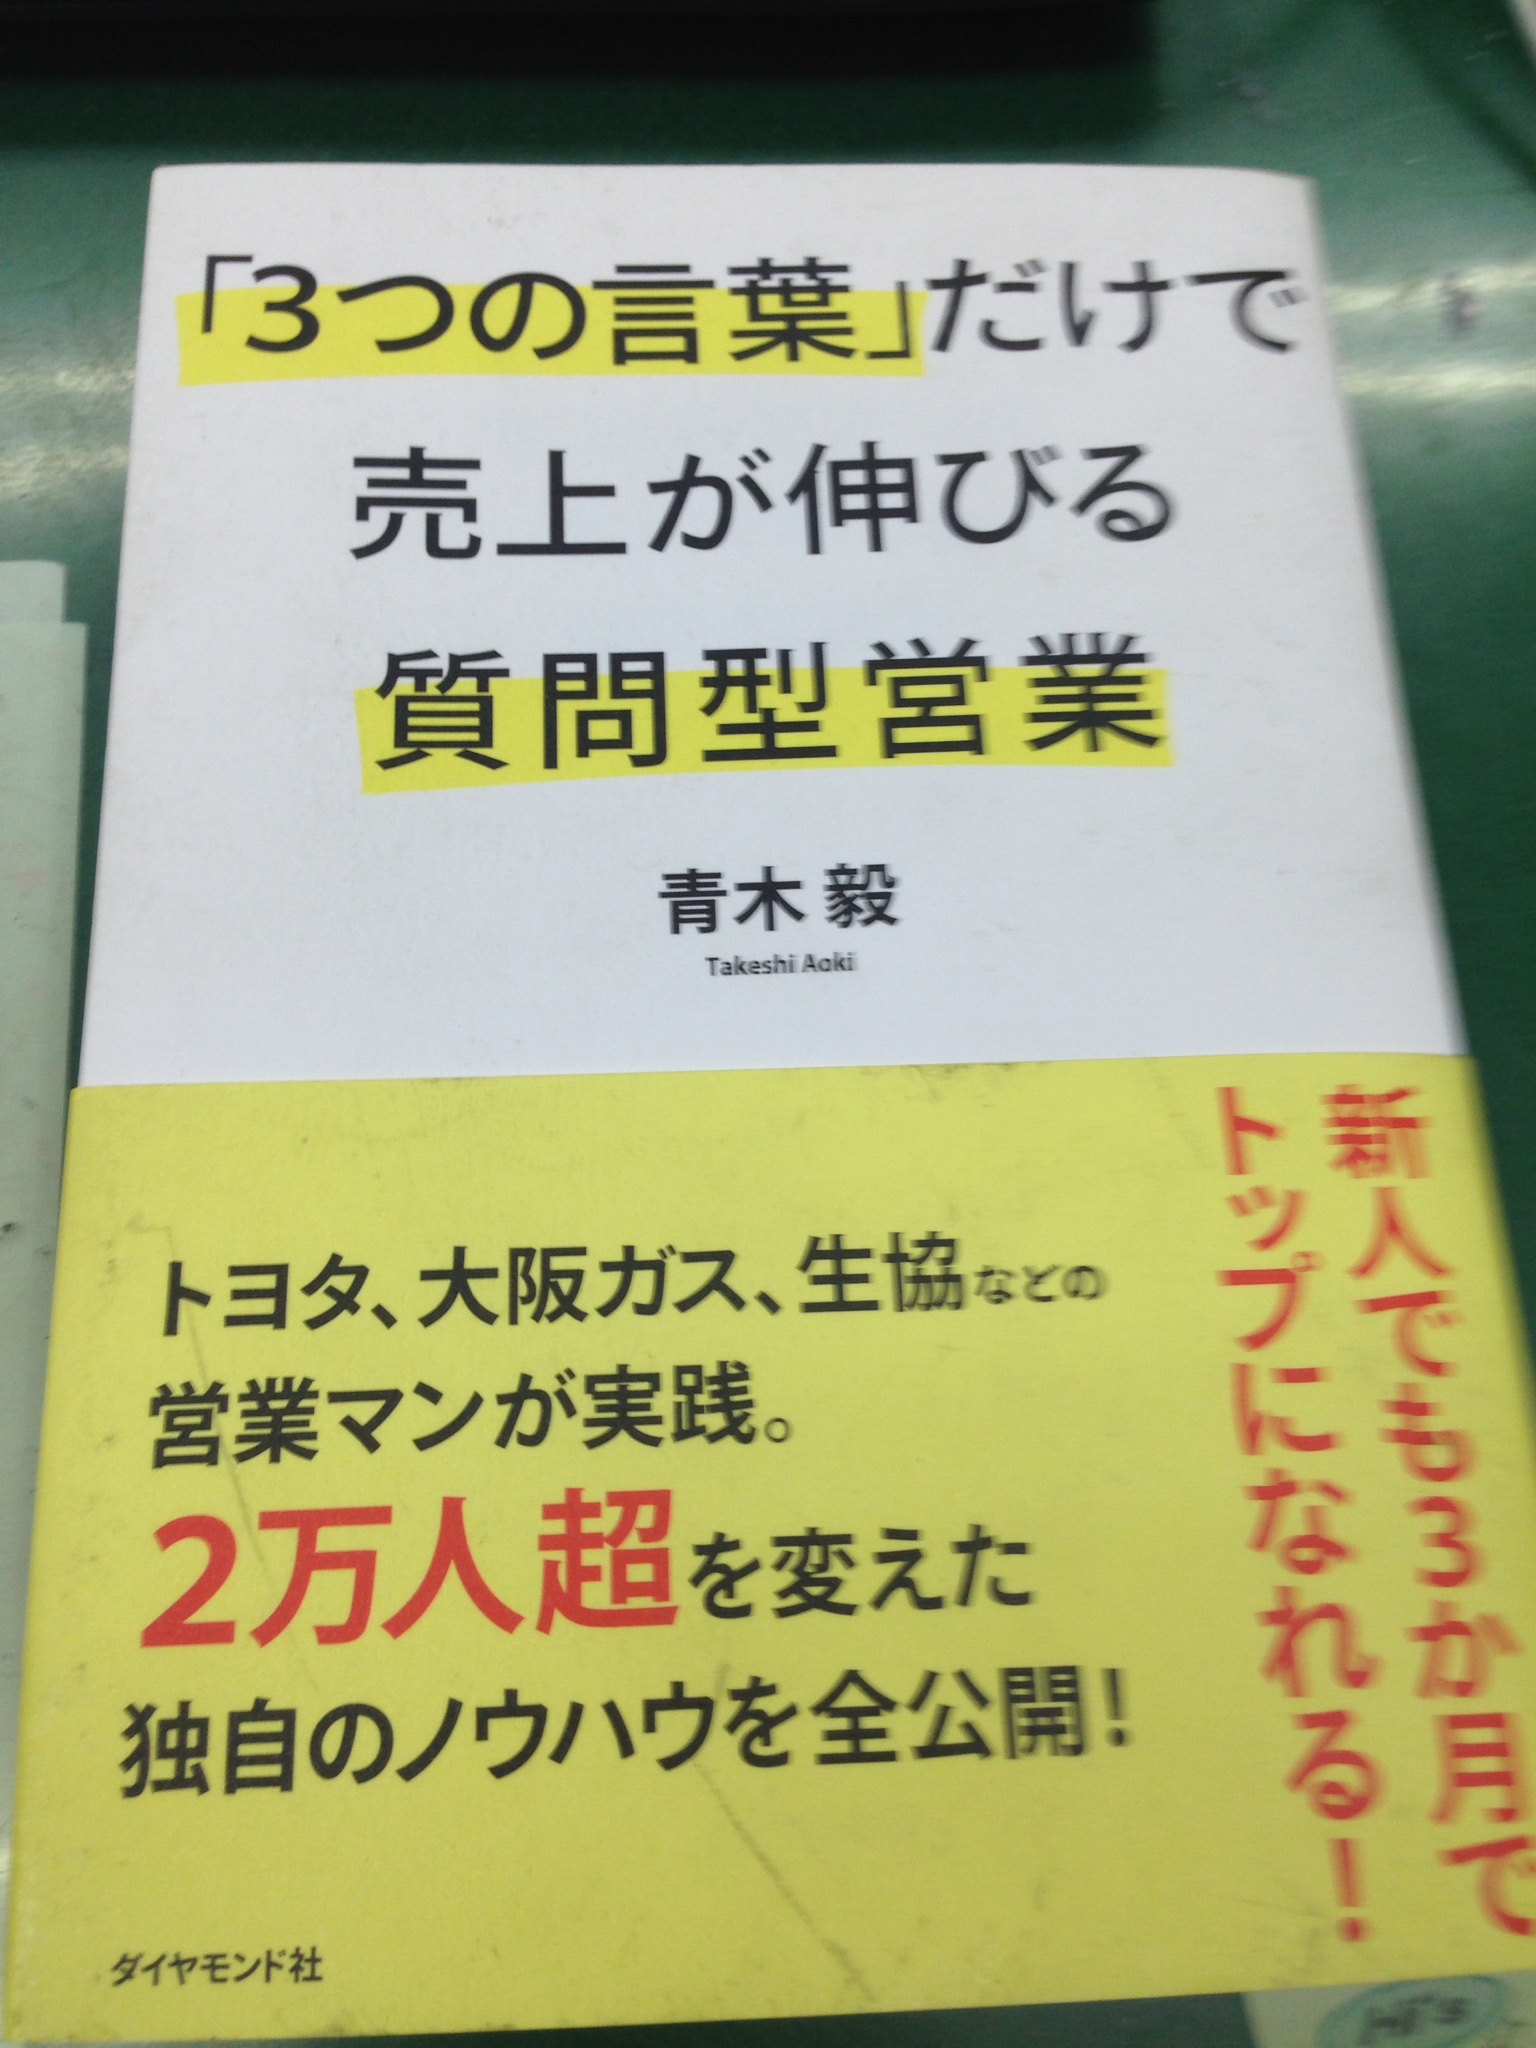 「3つの言葉」だけで
売上が伸びる
質問型営業
青木 毅
Takeshi Aoki
新人でも3か月で
トップになれる!
トヨタ、大阪ガス、生協などの
営業マンが実践。
2万人超を変えた
独自のノウハウを全公開!
ダイヤモンド社